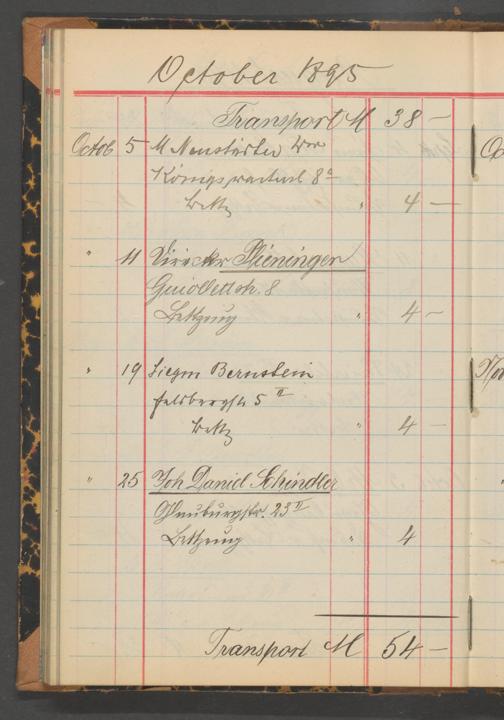 October 1895
Transport M 38 —
Octob 5 M Neustädter Wwe
Königswarterstr 8a
Bettz " 4 —
" 11 Director Thieninger
Guiollettstr. 8
Bettzeug " 4 —
" 19 Siegm Bernstein
Feldbergstr 5 II
Bettz " 4 —
" 25 Joh Daniel Schindler
Glauburgstr. 23 II
Bettzeug " 4
Transport M 54 —